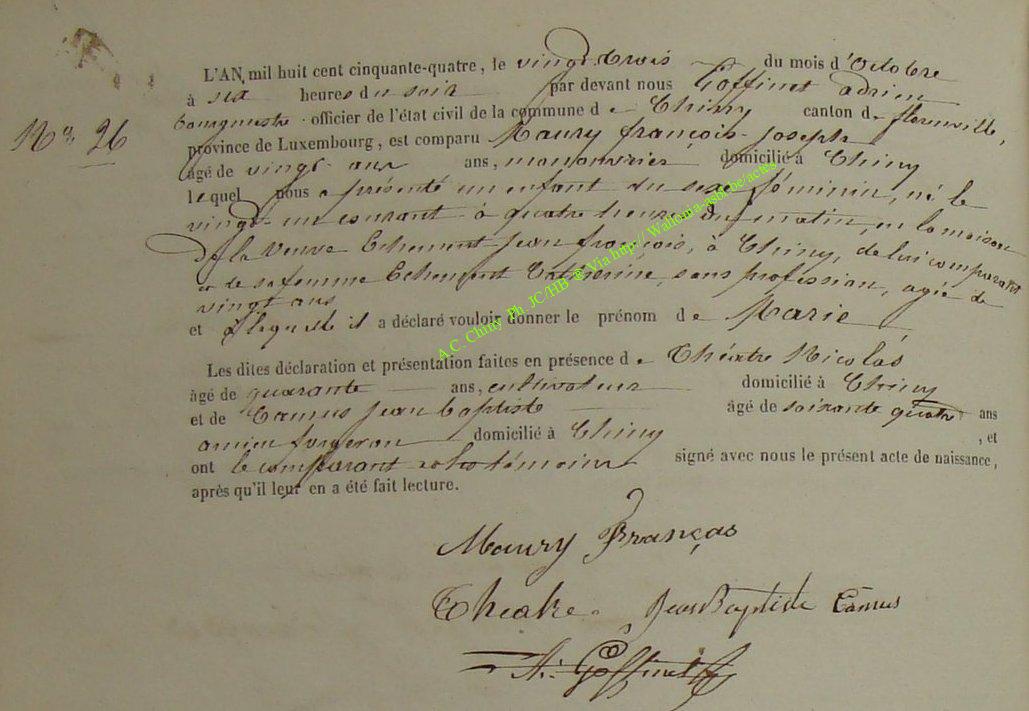 L'AN mil huit cent cinquante-quatre, le vingt-trois du mois d'Octobre
à six heures du soir par devant nous Goffinet adrien
bourgmestre officier de l'état civil de la commune de Chiny canton de florenville,
N° 26
province de Luxembourg, est comparu Maury françois-joseph
âgé de vingt ans ans, manouvrier domicilié à Chiny
lequel nous a présenté un enfant du sexe féminin, né le
vingt-un courant à quatre heures du matin, en la maison
de la veuve Echement jean françois, à Chiny, de lui comparant
et de sa femme Echement Catherine, sans profession, agée de
vingt ans
et à laquelle il a déclaré vouloir donner le prénom de Marie
Les dites déclaration et présentation faites en présence de Théatre Nicolas
âgé de quarante ans, cultivateur domicilié à Chiny
et de Camus jean baptiste âgé de soixante quatre ans
ancien forgeron domicilié à Chiny , et
ont le comparant témoins signé avec nous le présent acte de naissance,
après qu'il leur en a été fait lecture.
Maury François
Theatre. Jean Baptiste Camus
A. Goffinet
A.C. Chiny Ph. JC/HB ® Via http:// Wallonia-asbl.be/actes